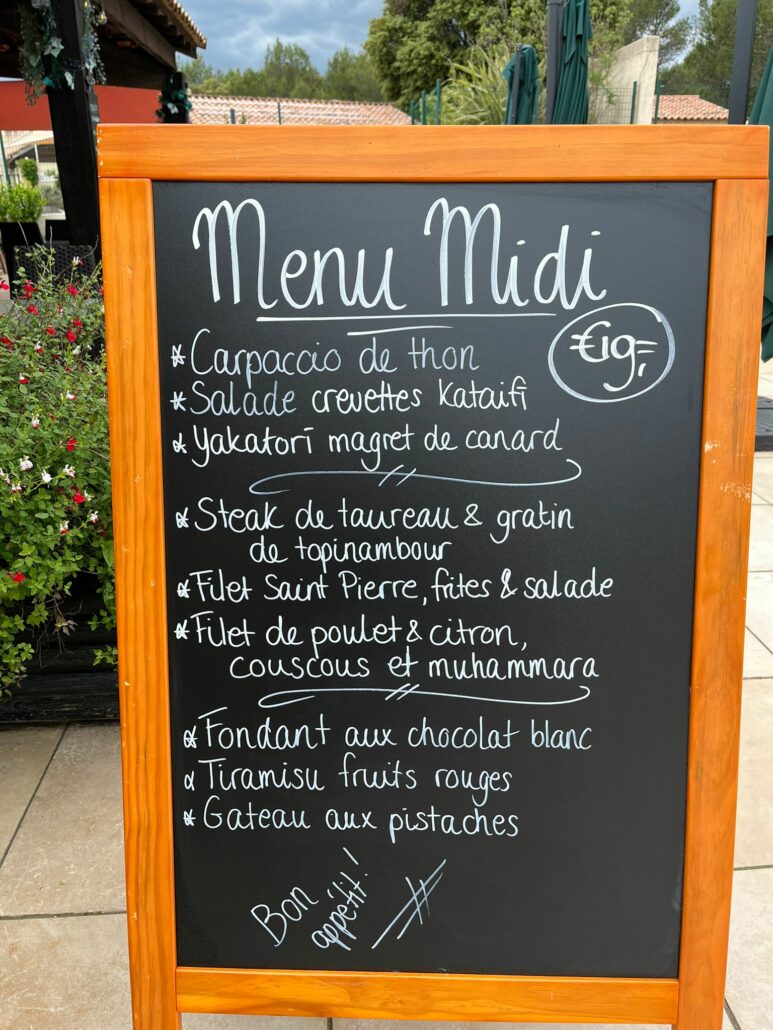 Menu Midi
€19,=
* Carpaccio de thon
* Salade crevettes Kataifi
* Yakatori magret de canard
* Steak de taureau & gratin
de topinambour
* Filet Saint Pierre, frites & salade
* Filet de poulet & citron,
couscous et muhammara
* Fondant aux chocolat blanc
* Tiramisu fruits rouges
* Gateau aux pistaches
Bon
appétit!